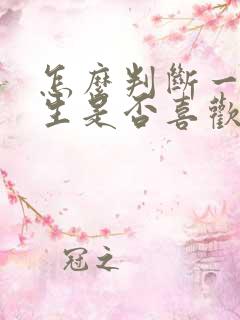 怎麼判斷一
生是否喜歡
冠之